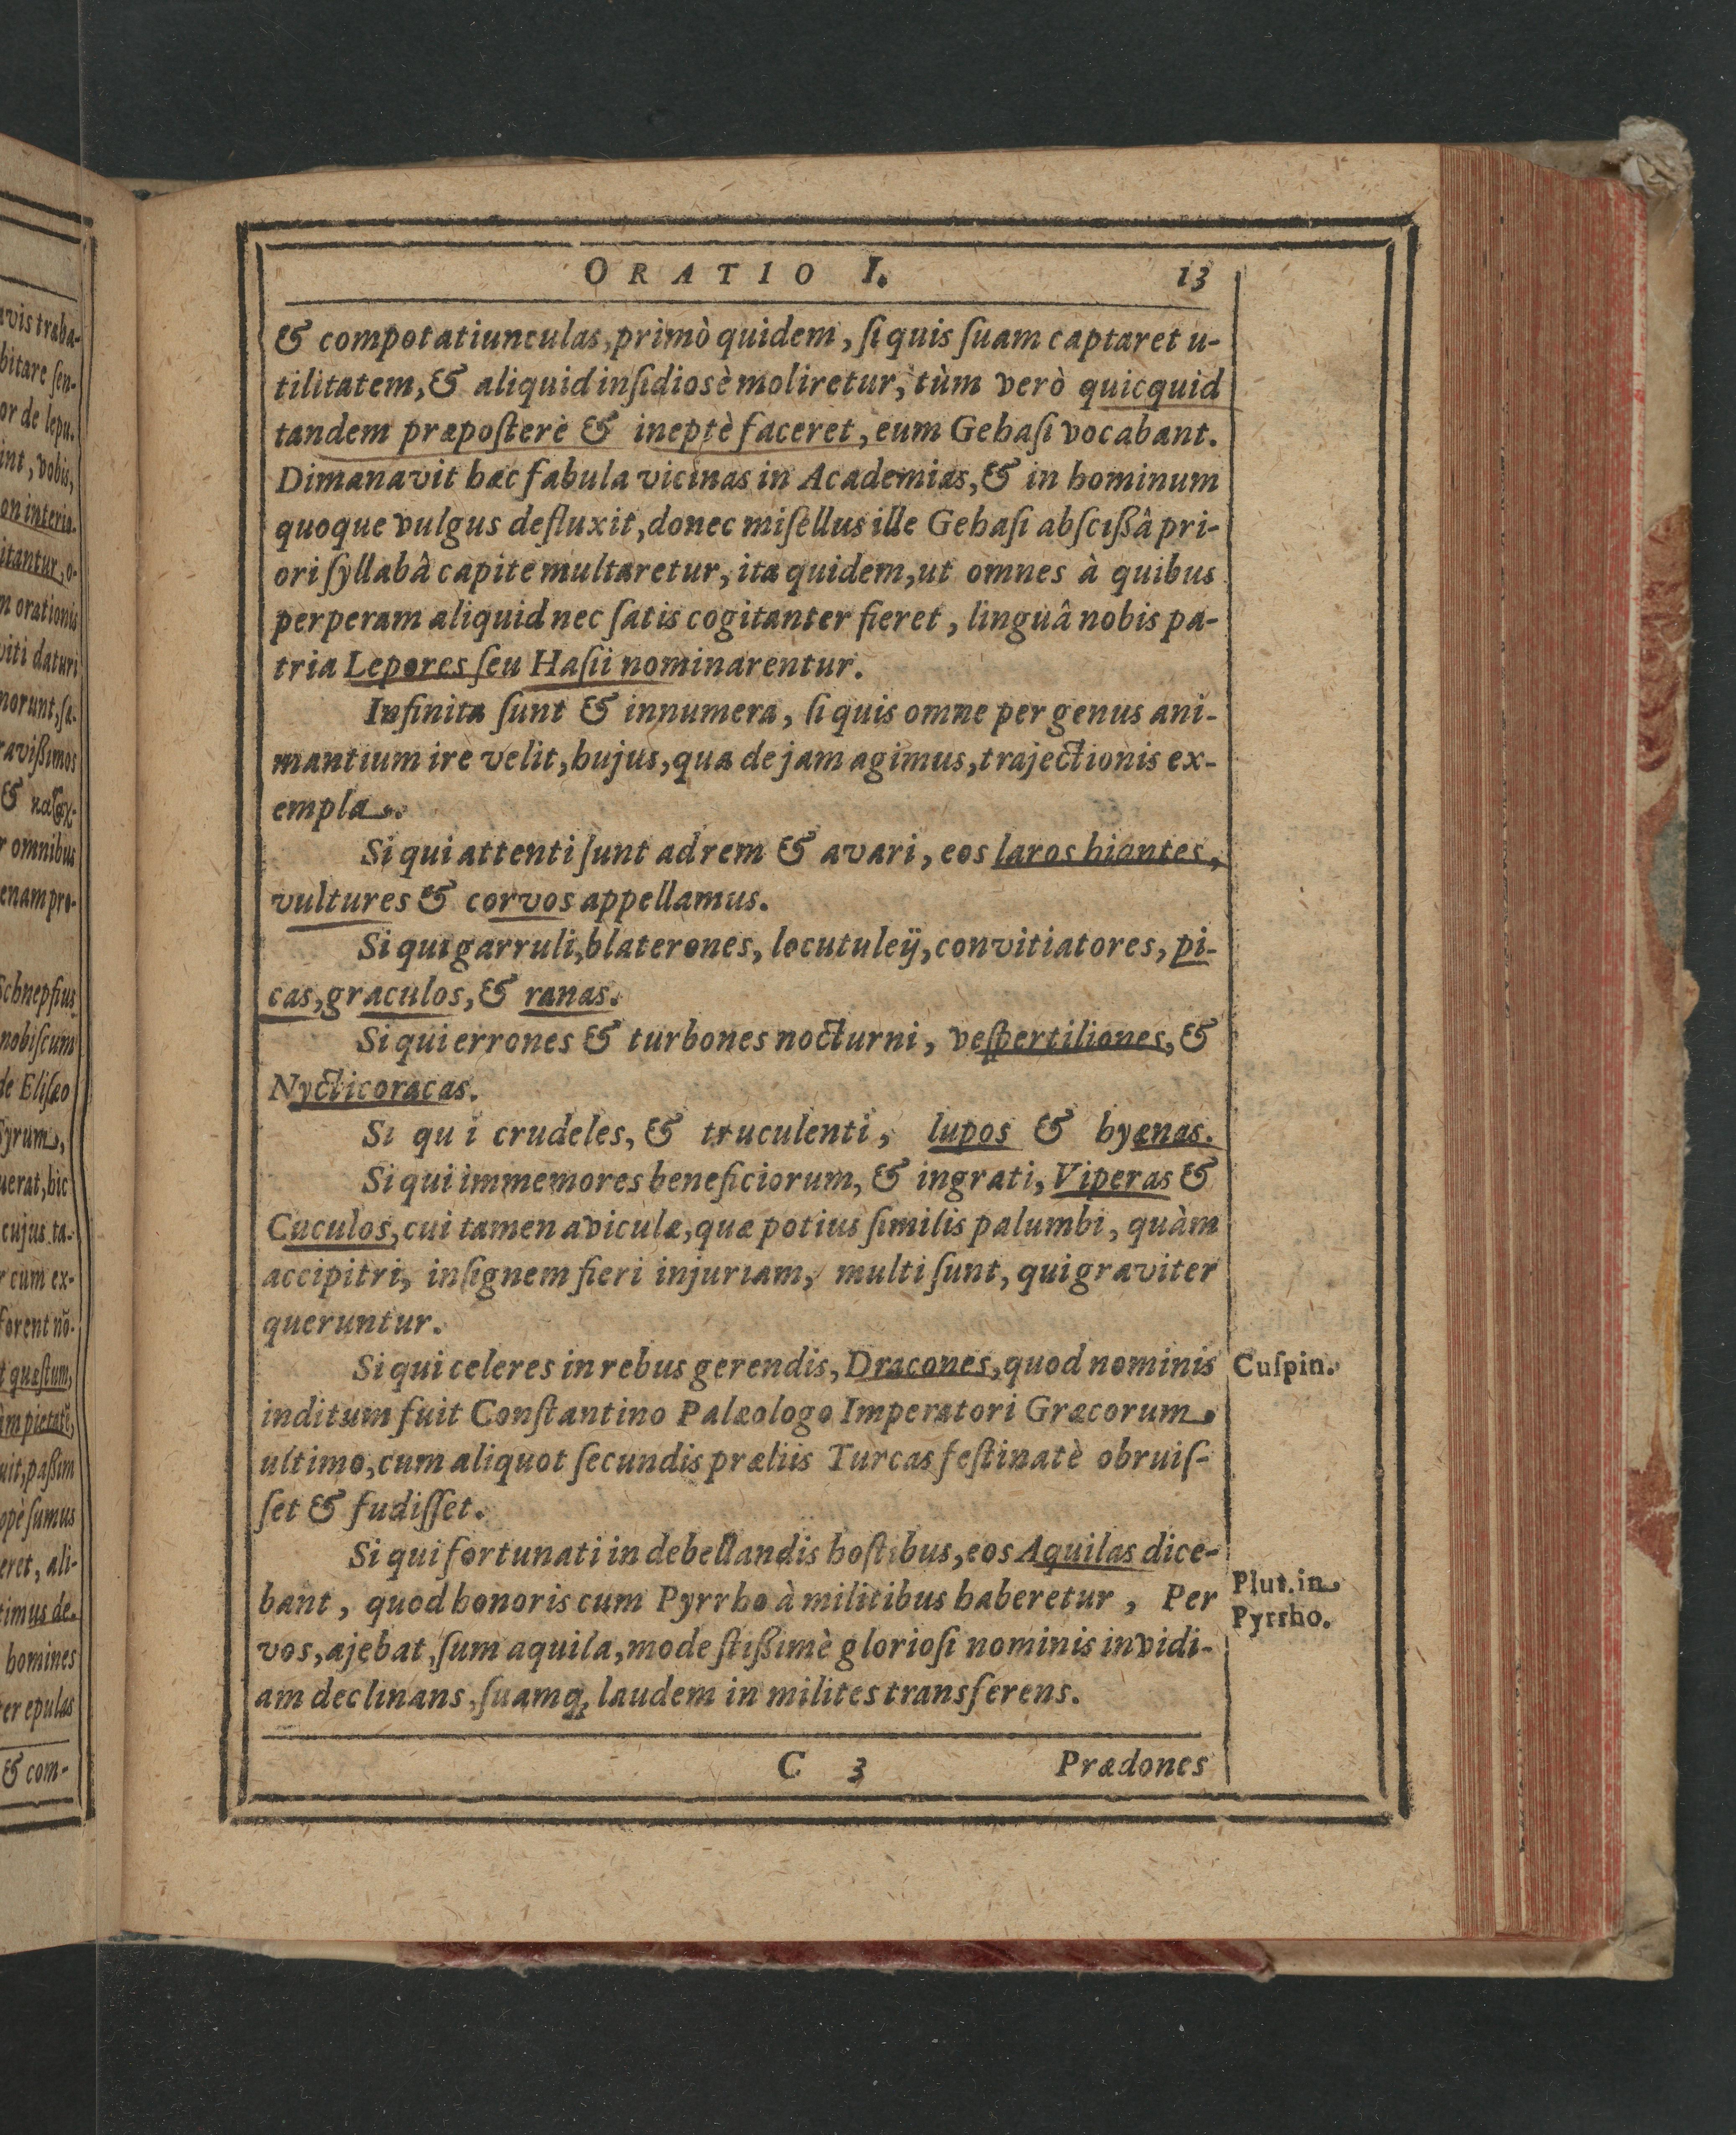 ORATIO I. 13
& compotatiunculas, primò quidem, ſi quis ſuam captaret u-
tilitatem, & aliquid inſidiosè moliretur, tùm verò quicquid
tandem præpoſterè & ineptè faceret, eum Gehaſi vocabant.
Dimanavit hæc fabula vicinas in Academias, & in hominum
quoque vulgus defluxit, donec miſellus ille Gehaſi abſcißâ pri-
ori ſyllabâ capite multaretur, ita quidem, ut omnes à quibus
perperam aliquid nec ſatis cogitanter fieret, linguâ nobis pa-
tria Lepores ſeu Haſii nominarentur.
Infinita ſunt & innumera, ſi quis omne per genus ani-
mantium ire velit, hujus, qua de jam agimus, trajectionis ex-
empla.
Si qui attenti ſunt ad rem & avari, eos laros hiantes,
vultures & corvos appellamus.
Si qui garruli, blaterones, locutuleij, convitiatores, pi-
cas, graculos, & ranas.
Si qui errones & turbones nocturni, veſpertiliones, &
Nycticoracas.
Si qui crudeles, & truculenti, lupos & hyænas.
Si qui immemores beneficiorum, & ingrati, Viperas &
Cuculos, cui tamen aviculæ, quæ potius ſimilis palumbi, quàm
accipitri, inſignem fieri injuriam, multi ſunt, qui graviter
queruntur.
Si qui celeres in rebus gerendis, Dracones, quod nominis
inditum fuit Conſtantino Palæologo Imperatori Græcorum
ultimo, cum aliquot ſecundis præliis Turcas feſtinatè obruiſ-
ſet & fudiſſet.
Si qui fortunati in debellandis hoſtibus, eos Aquilas dice-
bant, quod honoris cum Pyrrho à militibus haberetur, Per
vos, ajebat, ſum aquila, modeſtißimè glorioſi nominis invidi-
am declinans, ſuamq; laudem in milites transferens.
C 3 Prædones
Cuſpin.
Plut. in
Pyrrho.
avis traha-
bitare ſen-
or de lepu-
int, vobis,
on interio-
itantur, o-
m orationis
viti daturi
norunt, ſa-
ravißimos
r omnibus
enam pro-
Schnepfius
nobiſcum
de Eliſæo
Syrum,
uerat, hic
cujus ta-
r cum ex-
forent nõ-
t quæſtum,
uit, paßim
opè ſumus
eret, ali-
timus de-
homines
ter epulas
& com-